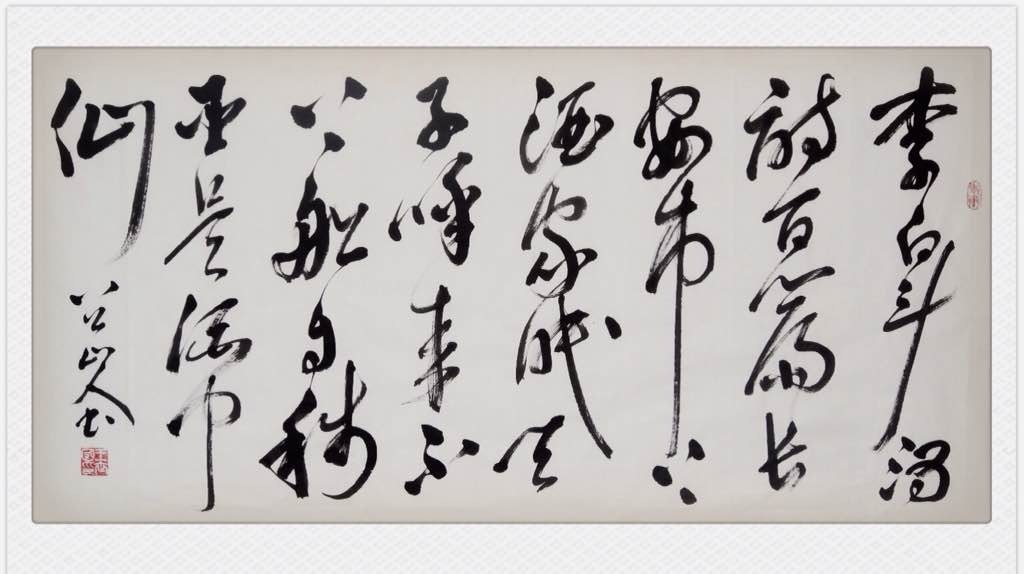 李白斗酒
詩百篇长
安市上
酒家眠天
子呼来不
上船自称
臣是酒中
仙
公山人书